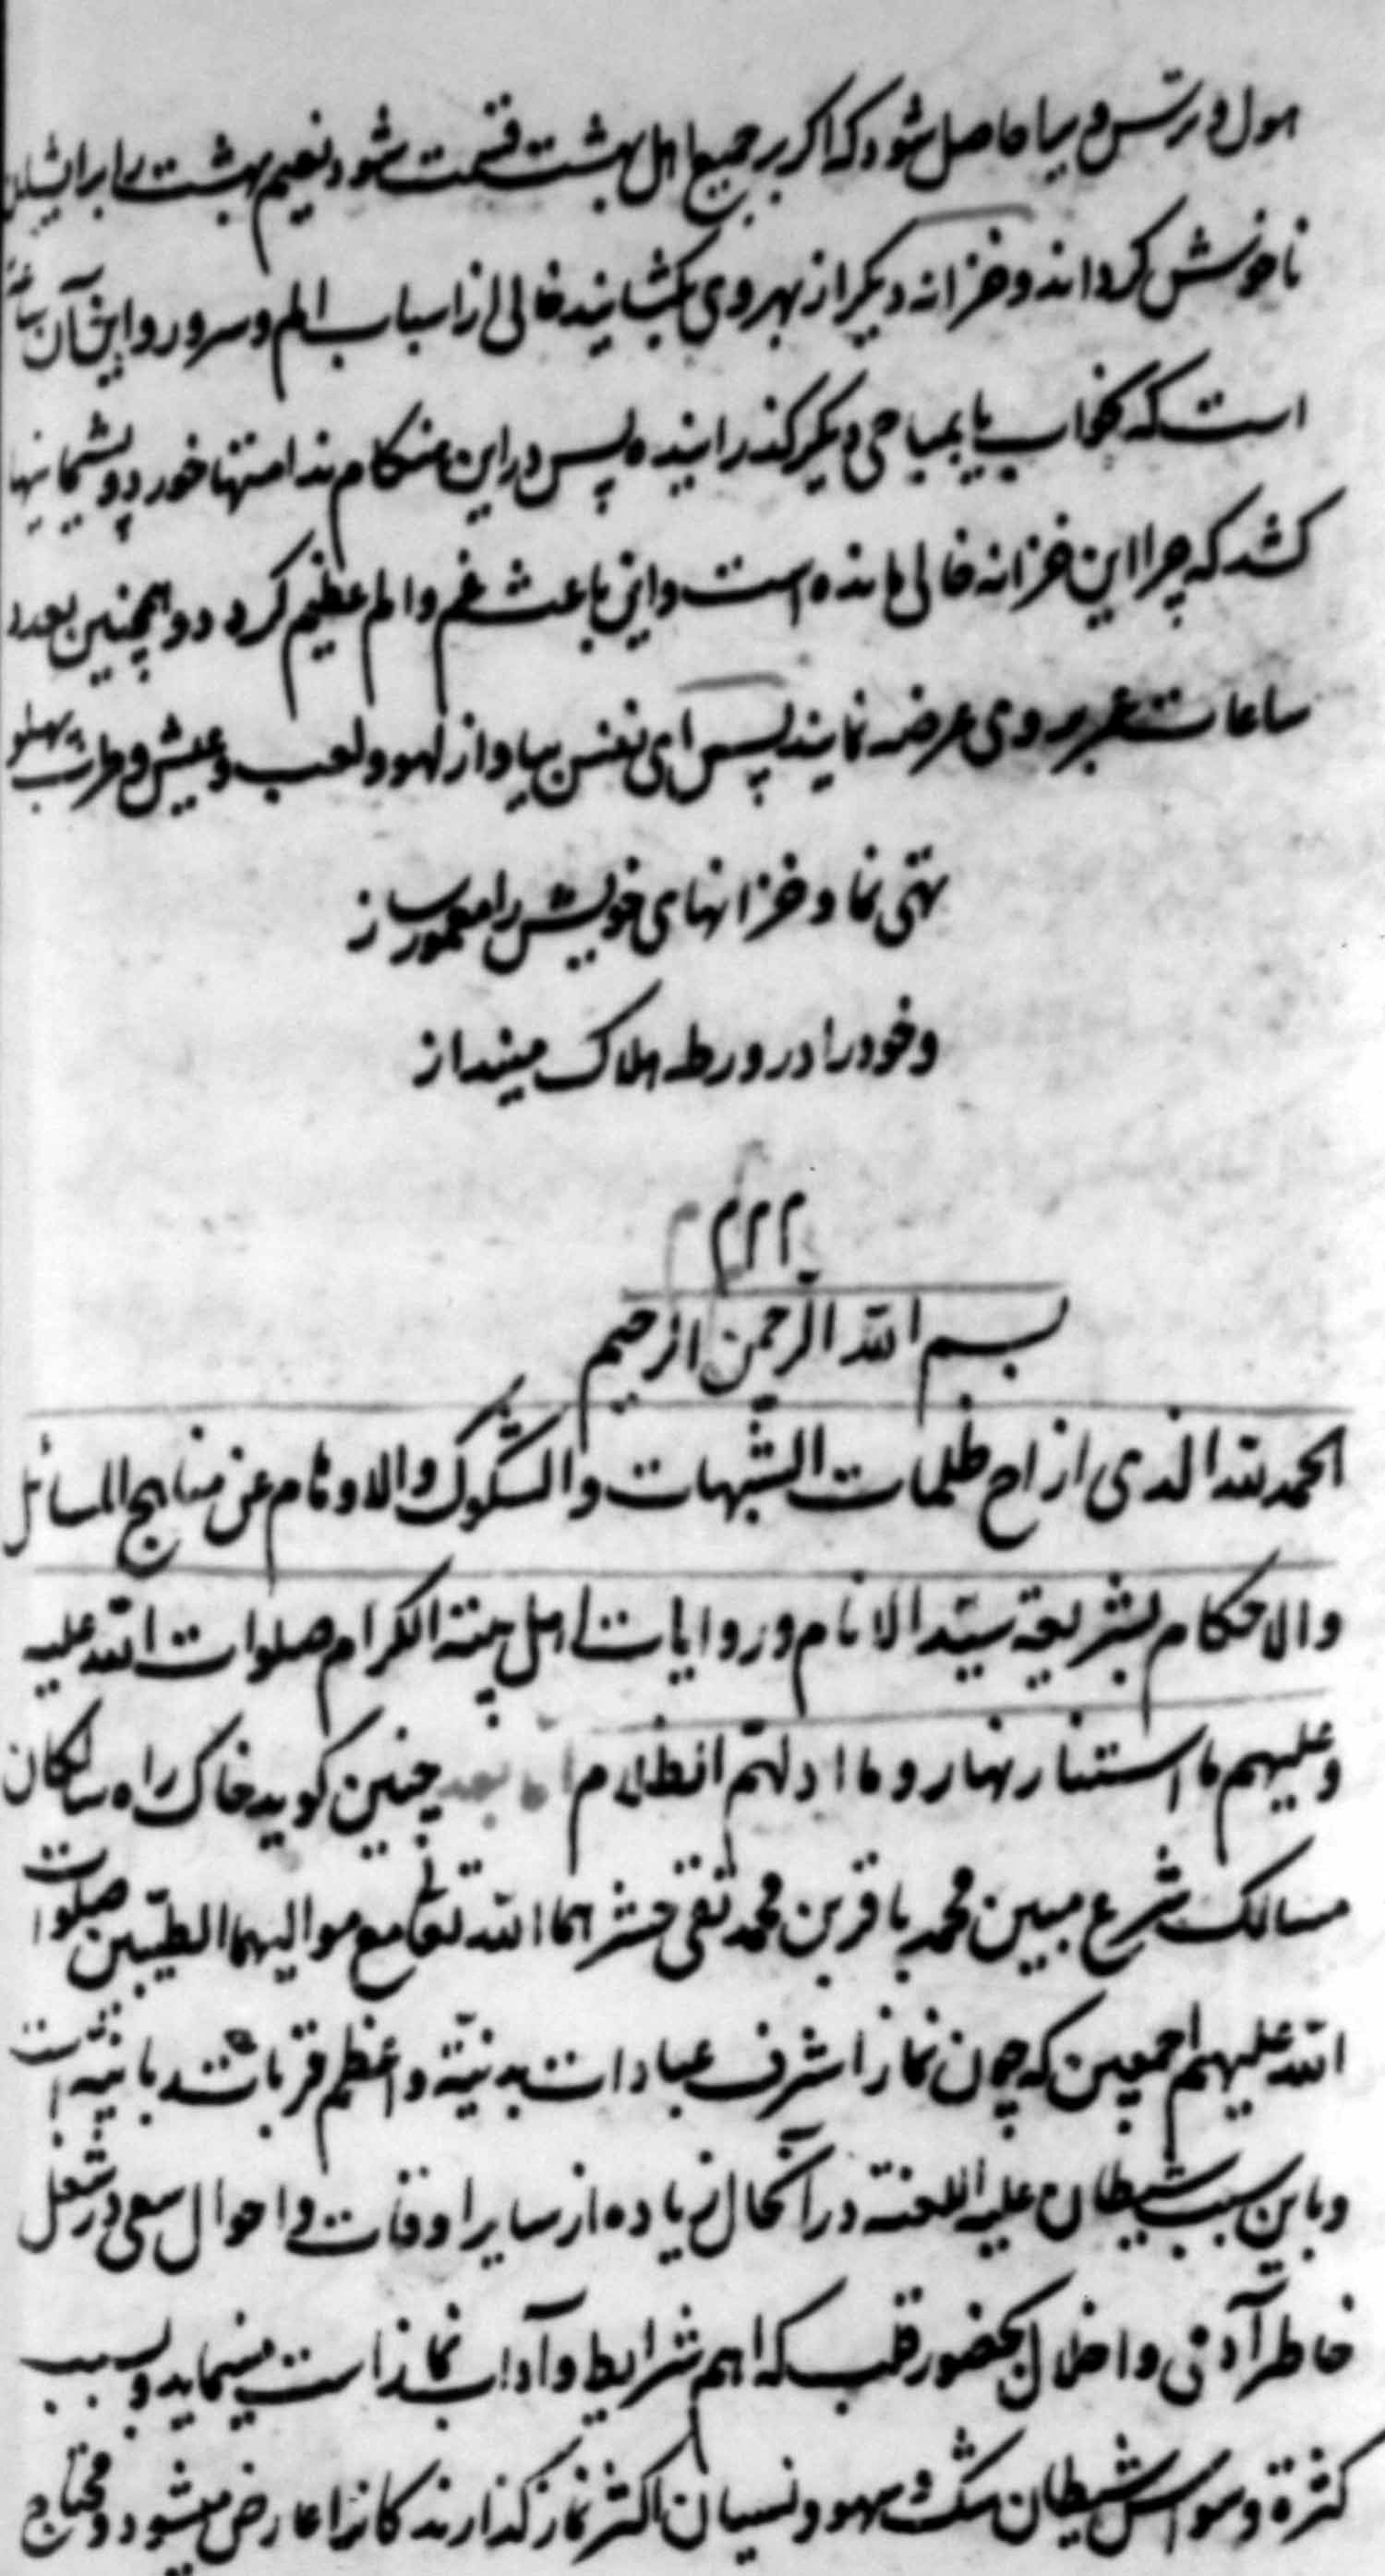 هول و ترس و بیبا حاصل شود که اکر بر جمیع اهل بهشت قسمت شود نعیم بهشت را بر ایشان
ناخوش کرداند و خزانه دیکر از بهر وی بکشایند خالی از اسباب الم و سرور و این آن ساعتی
است که بخواب یا بمباحی دیکر کذرانیده پس در این هنکام ندامتها خورد و پشیمانیها
کشد که چرا این خزانه خالی مانده است و این باعث غم و الم عظیم کردد و همچنین بعدد
ساعات عمر بر وی عرضه نمایند پس ای نفس بیا و از لهو و لعب و عیش و طرب پهلو
تهی نما و خزانهای خویش را معمور ساز
و خود را در ورطه هلاک مینداز
م م م م
بسم الله الرحمن الرحیم
الحمد لله الذی ازاح ظلمات الشبهات والشکوک والاوهام عن مناهج المسائل
والاحکام بشریعة سید الانام وروایات اهل بیته الکرام صلوات الله علیه
وعلیهم ما استنار نهار وما ادلهم الظلام اما بعد چنین کوید خاک راه سالکان
مسالک شرع مبین محمد باقر بن محمد تقی حشرهما الله تعالی مع موالیهما الطیبین صلوات
الله علیهم اجمعین که چون نماز اشرف عبادات بدنیّه و اعظم قربات ربانیه است
و باین سبب شیطان علیه اللعنة در آنحال زیاده از سایر اوقات و احوال سعی در شغل
خاطر آدمی و اخلال بحضور قلب که اهم شرایط و آداب نماز است مینماید و بسبب
کثرة وسواس شیطان شک و سهو و نسیان اکثر نماز کذارندکانرا عارض میشود و محتاج